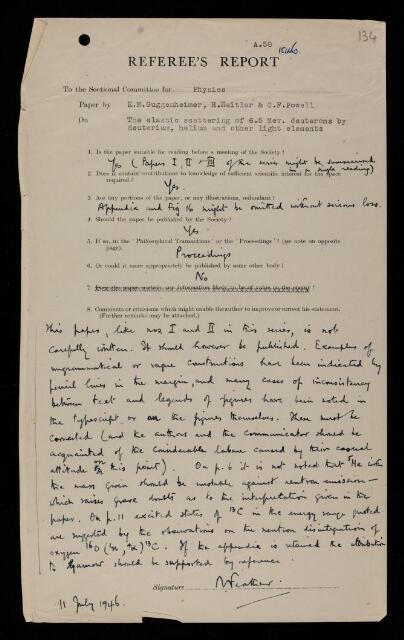 134
A.58
10116.
REFEREE'S REPORT
To the Sectional Committee for Physics
Paper by K.M.Guggenheimer, H.Heitler & C.F.Powell
On The elastic scattering of 6.5 Mev. deuterons by
deuterium, helium and other light elements
1. Is the paper suitable for reading before a meeting of the Society?
Yes (Papers I, II & III of the series might be summarised
in a single reading)
2. Does it contain contributions to knowledge of sufficient scientific interest for the space
required?
Yes.
3. Are any portions of the paper, or any illustrations, redundant?
Appendix and Fig 16 might be omitted without serious loss.
4. Should the paper be published by the Society?
Yes
5. If so, in the "Philosophical Transactions" or the "Proceedings"? (see note on opposite
page).
Proceedings
6. Or could it more appropriately be published by some other body?
No
7. Does the paper contain any information likely to be of value to the enemy?
8. Comments or criticisms which might enable the author to improve or correct his statement.
(Further remarks may be attached.)
This paper, like nos I and II in this series, is not
carefully written. It should however be published. Examples of
ungrammatical or vague constructions have been indicated by
pencil lines in the margin, and many cases of inconsistency
between text and legends of figures have been noted in
the typescript or on the figures themselves. These must be
corrected (and the authors and the communicator should be
acquainted of the considerable labour caused by their casual
attitude on this point). On p.6 it is not noted that ⁵He with
the mass given should be unstable against neutron emission —
which raises grave doubts as to the interpretation given in the
paper. On p.11 excited states of ¹³C in the energy range quoted
are suggested by the observations on the neutron disintegration of
oxygen ¹⁶O (n, α) ¹³C. If the appendix is retained the attribution
to Gamow should be supported by reference.
Signature N Feather.
11 July 1946.